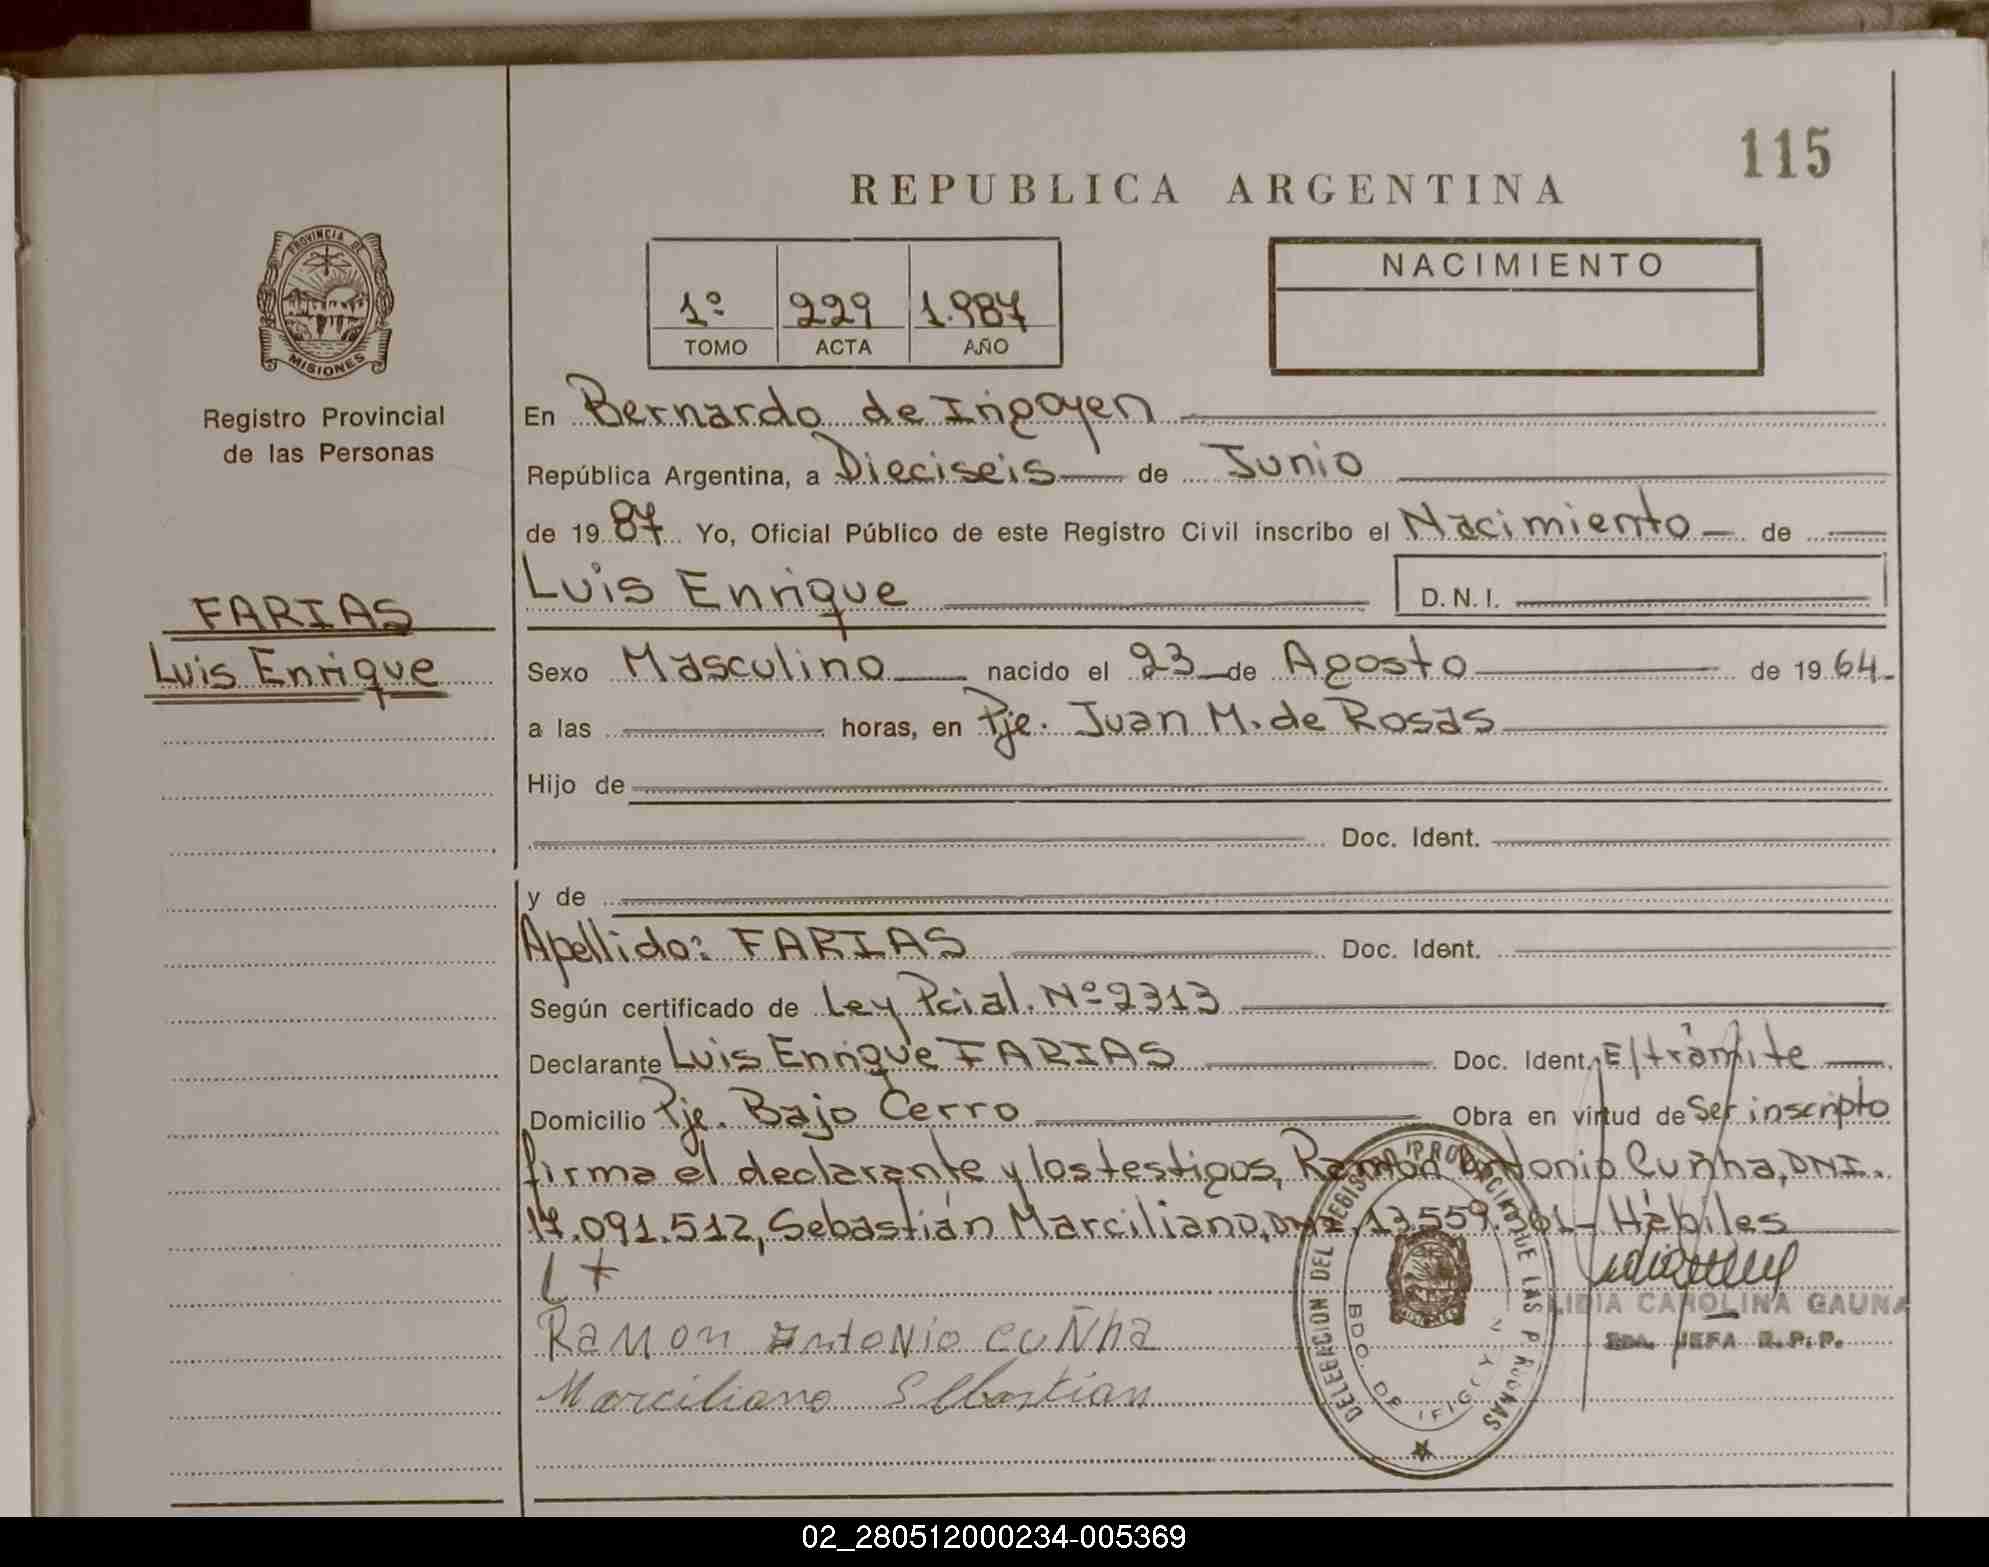 115
REPUBLICA ARGENTINA
PROVINCIA DE
MISIONES
Registro Provincial
de las Personas
1º 229 1.987
TOMO ACTA AÑO
NACIMIENTO
En Bernardo de Irigoyen
República Argentina, a Dieciseis de Junio
de 1987 Yo, Oficial Público de este Registro Civil inscribo el Nacimiento de
Luis Enrique D.N.I.
FARIAS
Luis Enrique
Sexo Masculino nacido el 23 de Agosto de 1964
a las horas, en Pje. Juan M. de Rosas
Hijo de
Doc. Ident.
y de
Apellido: FARIAS Doc. Ident.
Según certificado de Ley Pcial. Nº 2313
Declarante Luis Enrique FARIAS Doc. Ident. E/trámite
Domicilio Pje. Bajo Cerro Obra en virtud de Ser inscripto
firma el declarante y los testigos, Ramón Antonio Cuñha, DNI.
17.091.512, Sebastián Marciliano, DNI. Hábiles
L +
Ramon Antonio Cuñha
Marciliano Sebastian
DELEGACION DEL REGISTRO PROVINCIAL DE LAS PERSONAS
BDO. DE IRIGOYEN
LIDIA CAROLINA GAUNA
JEFA R.P.P.
02_280512000234-005369